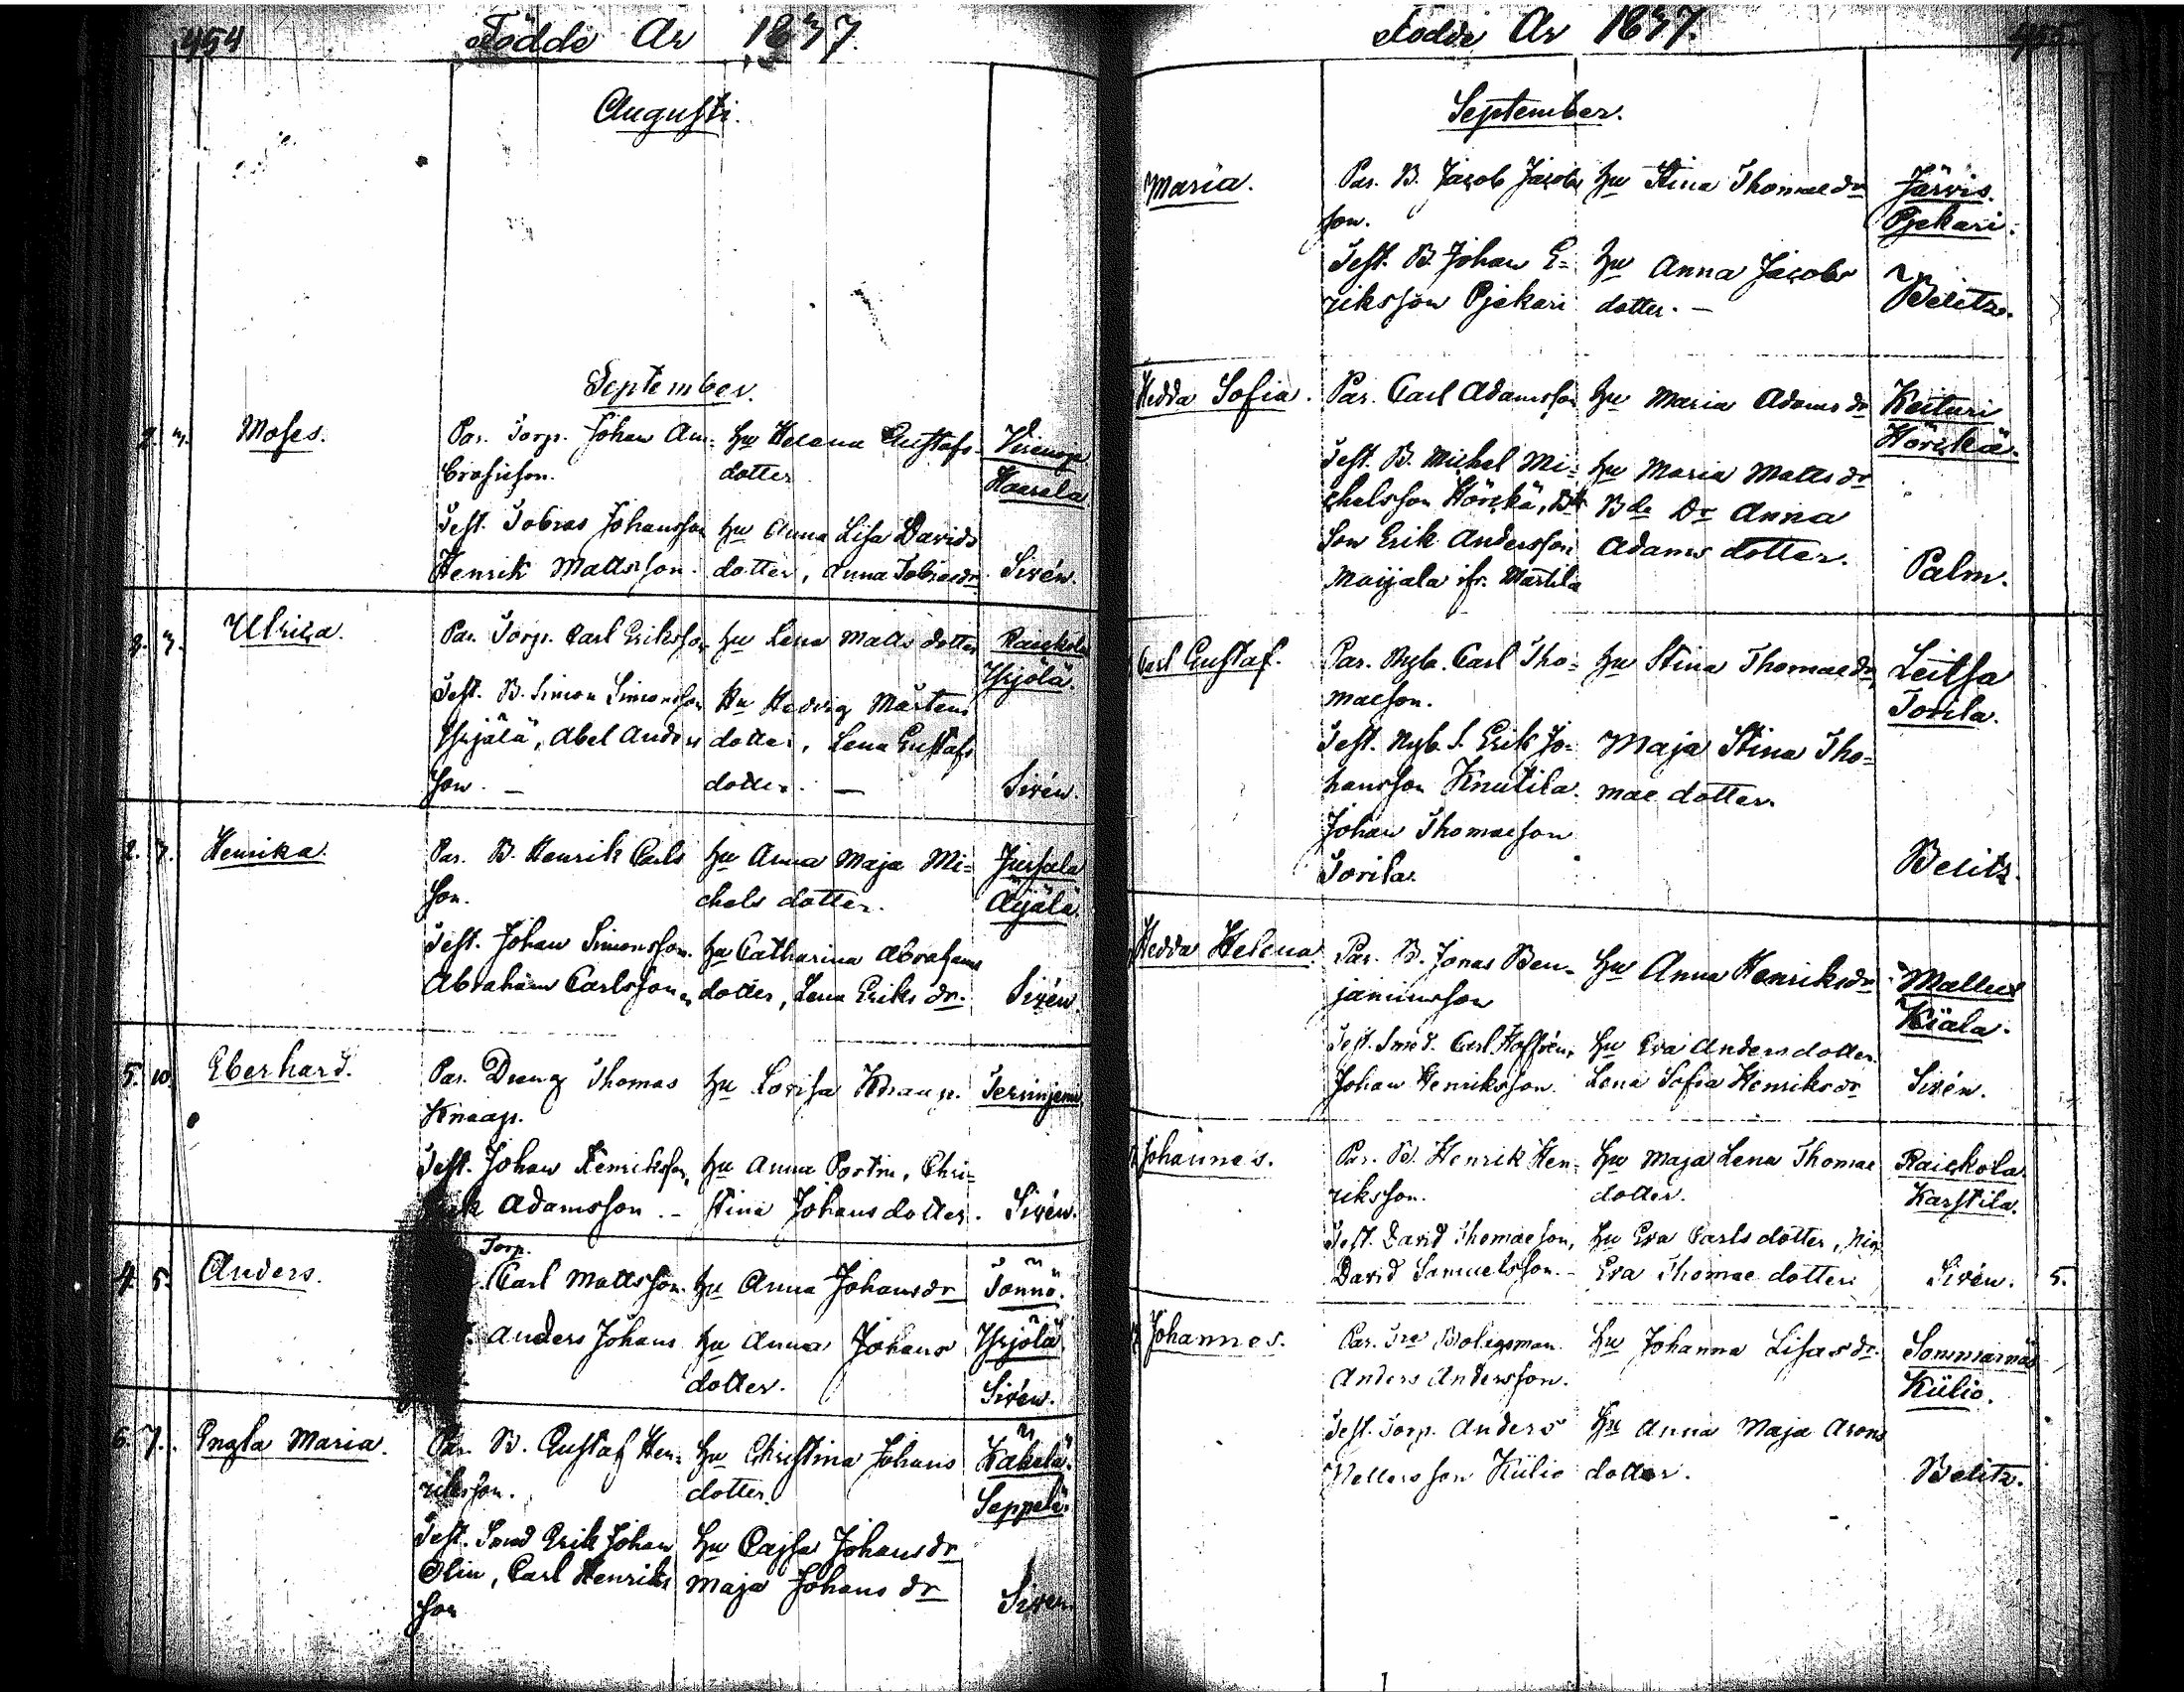 454
Födde År 1837.
Augusti.
September.
2. 3. Moses.
Par. Torp. Johan Am-
brosiison.
hu Helena Gustafs-
dotter
Haarala
Test. Tobias Johansson
Henrik Mattsson.
hu Anna Lisa Davids
dotter, Anna Tobiaedr.
Sirén.
2. 3. Ulrica.
Par. Torp. Carl Eriksson
hu Lena Matts dotter
Raickola
Yrjölä.
Test. B. Simon Simonsson
Yrjälä, Abel Anders
son. —
Hu Hedvig Mårtens
dotter, Lena Gustafs
dotter. —
Sirén.
2. 7. Henrika.
Par. B. Henrik Carls
son.
hu Anna Maja Mi=
chels dotter.
Äijälä.
Test. Johan Simonsson.
Abraham Carlsson
hu Catharina Abrahams
dotter, Lena Eriks dr.
Sirén.
5. 10. Eberhard.
Par. Dreng Thomas
Knaap.
hu Lovisa Knaap.
Test. Johan Henriksson,
Adamsson. —
hu Anna Portin, Chri-
stina Johans dotter.
Sirén.
4. 5. Anders.
Torp.
Carl Mattsson.
hu Anna Johansdr
Tönnö.
Anders Johans
hu Anna Johans
dotter.
Yrjölä
Sirén.
6. 7. Engla Maria.
Par. B. Gustaf Hen-
riksson.
hu Christina Johans
dotter.
Kakela
Seppelä.
Test. Smed Erik Johan
Olin, Carl Henriks
son
hu Cajsa Johansdr
Maja Johans dr
Sirén.
Födde År 1837.
455
September.
Maria.
Par. B. Jacob Jacobs
son.
hu Stina Thomaedr
Järvis.
Pjekari.
Test. B. Johan E=
riksson Pjekari
hu Anna Jacobs
dotter. —
Belitz.
Hedda Sofia.
Par. Carl Adamsson
hu Maria Adams dr
Keituri
Hörckä.
Test. B. Michel Mi=
chelsson Hörckä, Bde
Son Erik Andersson
Maijala ifr. Martila
hu Maria Matts dr
Bde Dr Anna
Adams dotter.
Palm.
Carl Gustaf.
Par. Nyb. Carl Tho=
maeson.
hu Stina Thomaedr
Leitsa
Torila.
Test. Nyb. S. Erik Jo-
hansson Knutila.
Johan Thomaeson
Torila.
Maja Stina Tho=
mae dotter.
Belitz.
Hedda Helena.
Par. B. Jonas Ben-
jaminsson
hu Anna Henriksdr
Mallus
Kiala.
Test. Smed. Carl Hoffrén,
Johan Henriksson.
hu Eva Anders dotter.
Lena Sofia Henriksdr
Sirén.
Johannes.
Par. B. Henrik Hen-
riksson.
hu Maja Lena Thomae
dotter.
Raickola.
Karstila.
Test. David Thomaeson,
David Samuelsson. —
hu Eva Carls dotter, Pig.
Eva Thomae dotter.
Sirén. 5.
Johannes.
Par. Bolagsman
Anders Andersson.
hu Johanna Lisasdr.
Sommarnäs
Kiilio.
Test. Torp. Anders
Kiilio
hu Anna Maja Arons
dotter.
Belitz.